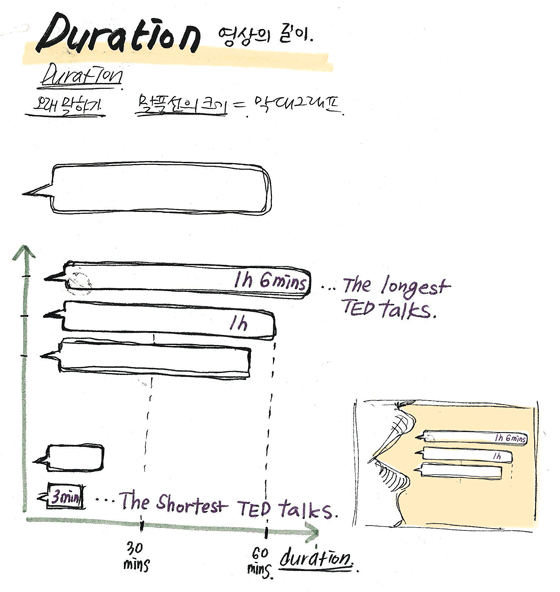 Duration 영상의 길이.
Duration
오래 말하기 말풍선의 크기 = 막대그래프
1h 6mins ... The longest
TED talks.
1h
3min ... The Shortest TED talks.
30
mins
60
mins.
duration.
1h 6mins
1h